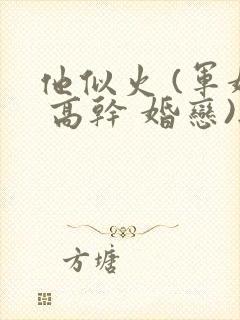 他似火（軍婚
高幹 婚戀）
方塘